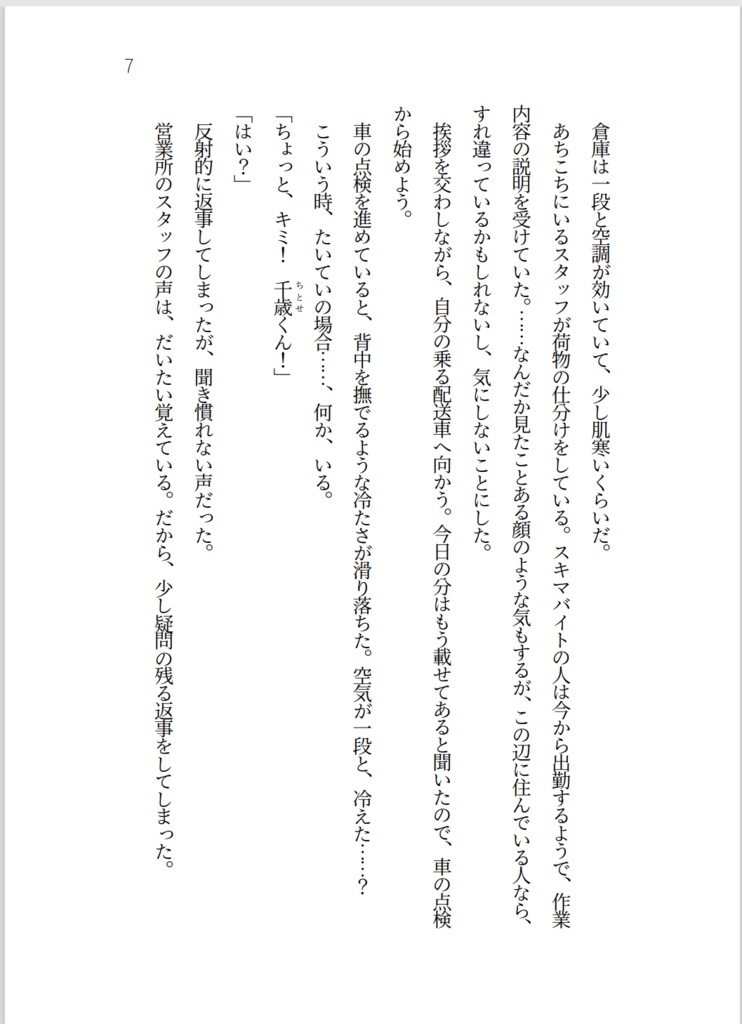 7
倉庫は一段と空調が効いていて、少し肌寒いくらいだ。
あちこちにいるスタッフが荷物の仕分けをしている。スキマバイトの人は今から出勤するようで、作業
内容の説明を受けていた。……なんだか見たことある顔のような気もするが、この辺に住んでいる人なら、
すれ違っているかもしれないし、気にしないことにした。
挨拶を交わしながら、自分の乗る配送車へ向かう。今日の分はもう載せてあると聞いたので、車の点検
から始めよう。
車の点検を進めていると、背中を撫でるような冷たさが滑り落ちた。空気が一段と、冷えた……？
こういう時、たいていの場合……、何か、いる。
「ちょっと、キミ！　千歳くん！」
ちとせ
「はい？」
反射的に返事してしまったが、聞き慣れない声だった。
営業所のスタッフの声は、だいたい覚えている。だから、少し疑問の残る返事をしてしまった。